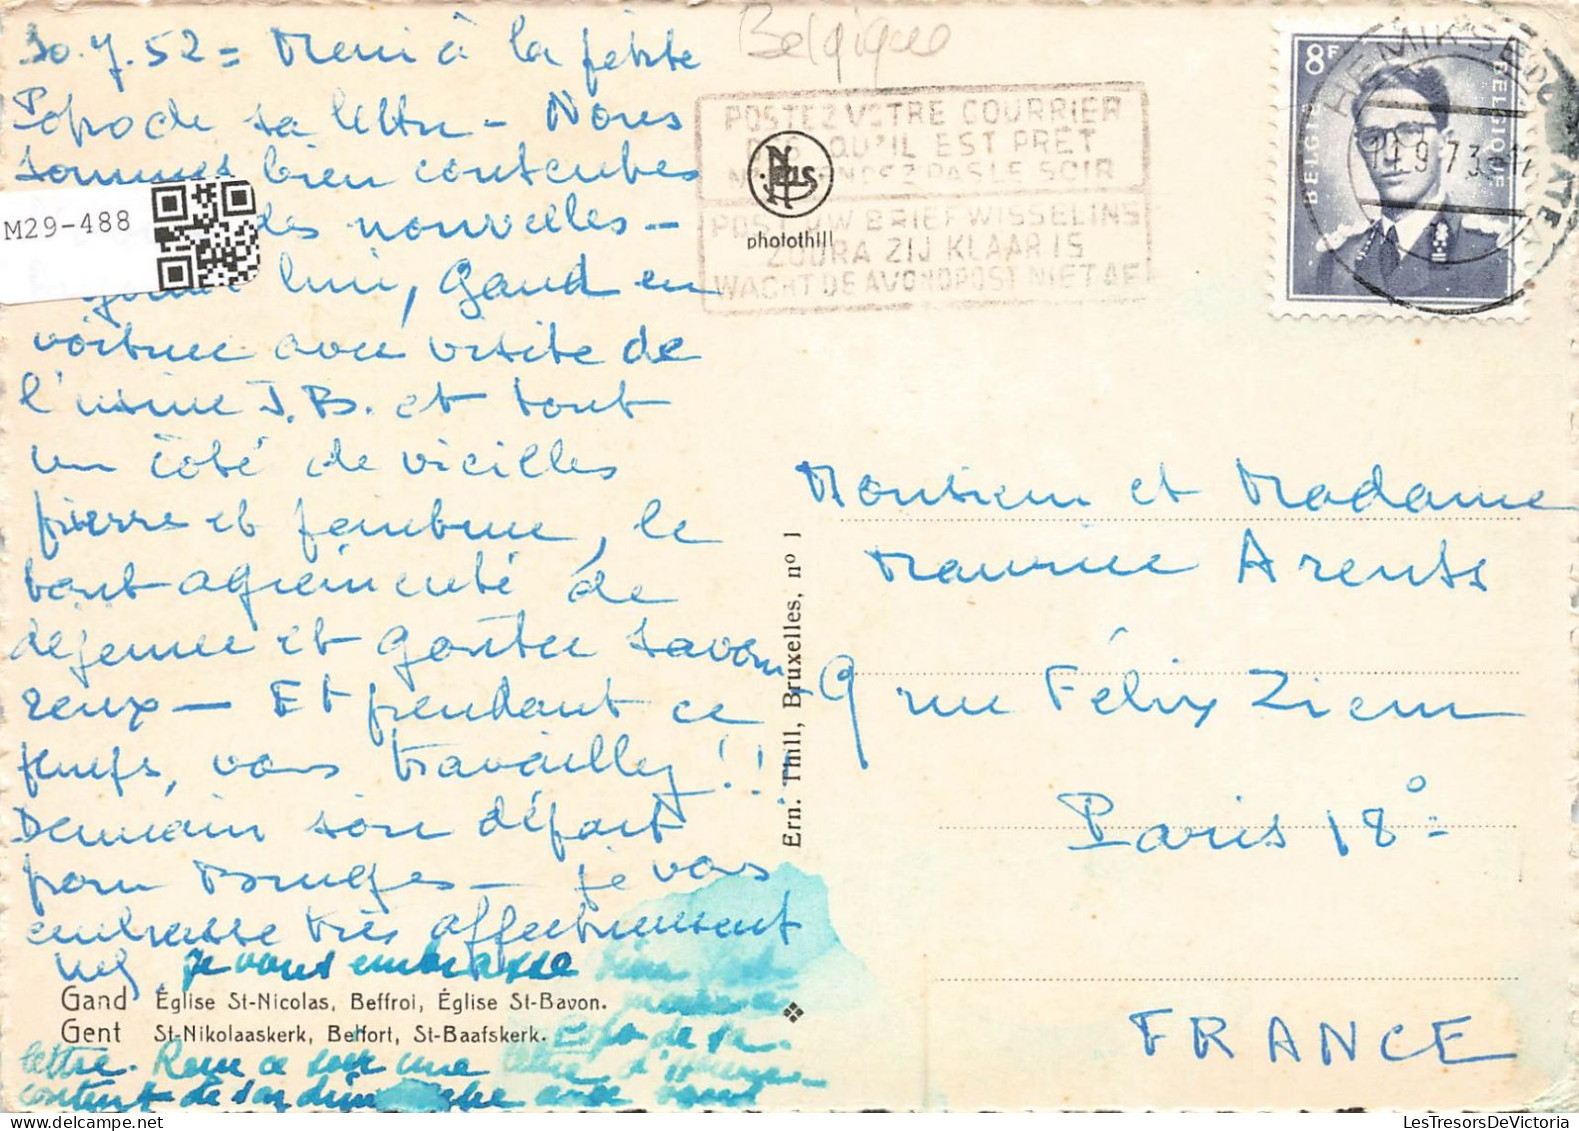 30.7.52 = Merci à la petite
Popo de sa lettre - Nous
sommes bien contentes
des nouvelles -
hui, Gand en
voiture avec visite de
l'usine J.B. et tout
un côté de vieilles
pierre et peinture, le
tout agrémenté de
déjeuner et goûter savou-
reux - Et pendant ce
temps, vous travaillez !!!
Demain soir départ
pour Bruges - je vous
embrasse très affectueusement
je vous embrasse
Gand Église St-Nicolas, Beffroi, Église St-Bavon.
Gent St-Nikolaaskerk, Belfort, St-Baafskerk.
Popo de sa
lettre. Reçu ce soir une lettre d'
content de son avec
M29-488
Belgique
POSTEZ VOTRE COURRIER
QU'IL EST PRÊT
PAS LE SOIR
POST UW BRIEFWISSELING
ZODRA ZIJ KLAAR IS
WACHT DE AVONDPOST NIET AF
Nels
photothill
Ern. Thill, Bruxelles, nº 1
8F
BELGIE BELGIQUE
HEMIKSEM
Monsieur et Madame
Maurice Arents
9 rue Félix Ziem
Paris 18°
FRANCE
delcampe.net
LesTresorsDeVictoria